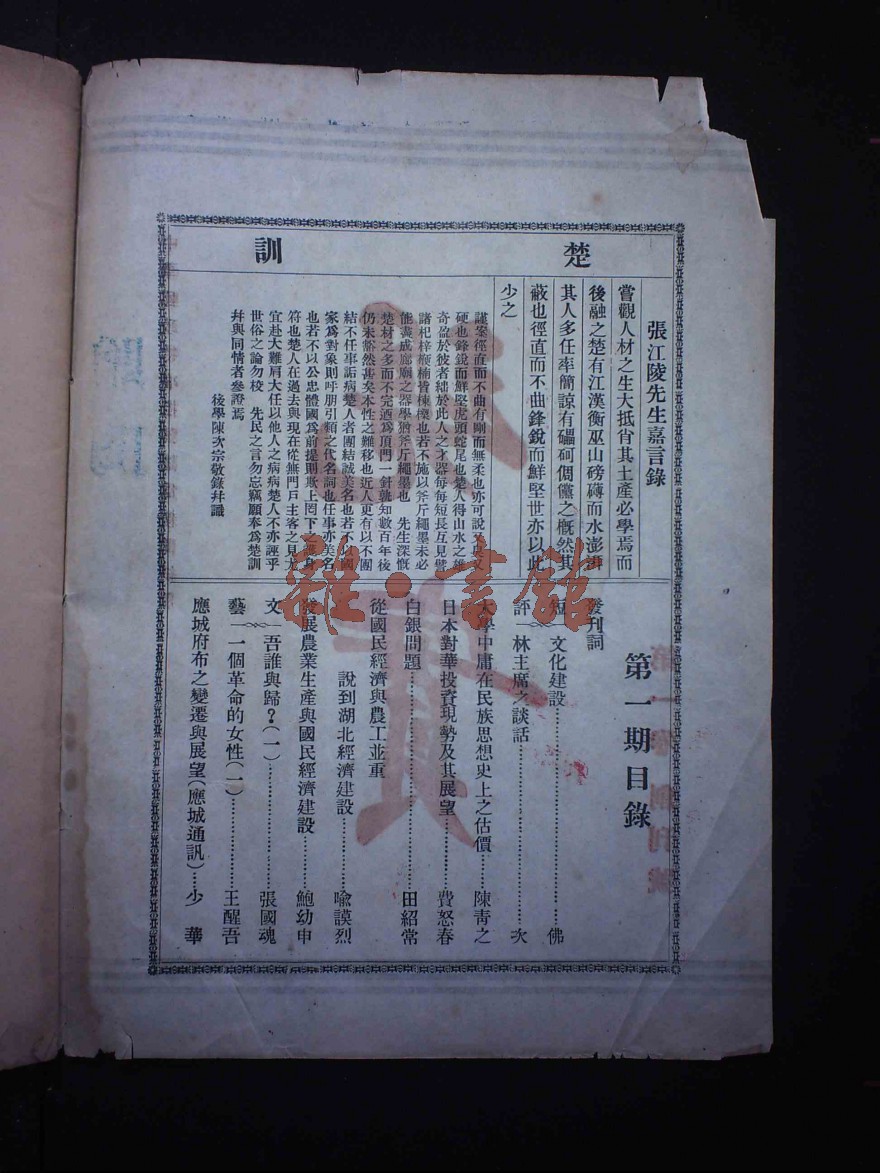 楚訓
張江陵先生嘉言錄
嘗觀人材之生大抵肖其土產必學焉而
後融之楚有江漢衡巫山磅礡而水澎湃
其人多任率簡諒有礧砢倜儻之槪然其
蔽也徑直而不曲鋒銳而鮮堅世亦以此
少之
謹案徑直而不曲有剛而無柔也亦可說又臭又
硬也鋒銳而鮮堅虎頭蛇尾也楚人得山水之雄
奇盈於彼者絀於此人之才器每每短長互見譬
諸杞梓楩楠皆棟樑也若不施以斧斤繩墨未必
能蔚成廊廟之器學猶斧斤繩墨也　先生深慨
楚材之多而不完迺爲頂門一針孰知數百年後
仍未豁然甚矣本性之難移也近人更有以不團
結不任事詬病楚人者團結誠美名也若不以國
家爲對象則呼朋引類之代名詞也任事亦美名
也若不以公忠體國爲前提則欺上罔下之護身
符也楚人在過去與現在從無門戶主客之見尤
宜赴大難肩大任以他人之病病楚人不亦誣乎
世俗之論勿校　先民之言勿忘竊願奉爲楚訓
幷與同情者參證焉
後學陳次宗敬錄幷識
第一期目錄
發刊詞
短評
文化建設……佛
林主席之談話……次
大學中庸在民族思想史上之估價……陳青之
日本對華投資現勢及其展望……費怒春
白銀問題……田紹常
從國民經濟與農工並重
說到湖北經濟建設……喩謨烈
發展農業生產與國民經濟建設……鮑幼申
文藝
吾誰與歸？(一)……張國魂
一個革命的女性(一)……王醒吾
應城府布之變遷與展望(應城通訊)……少華
雜·書館